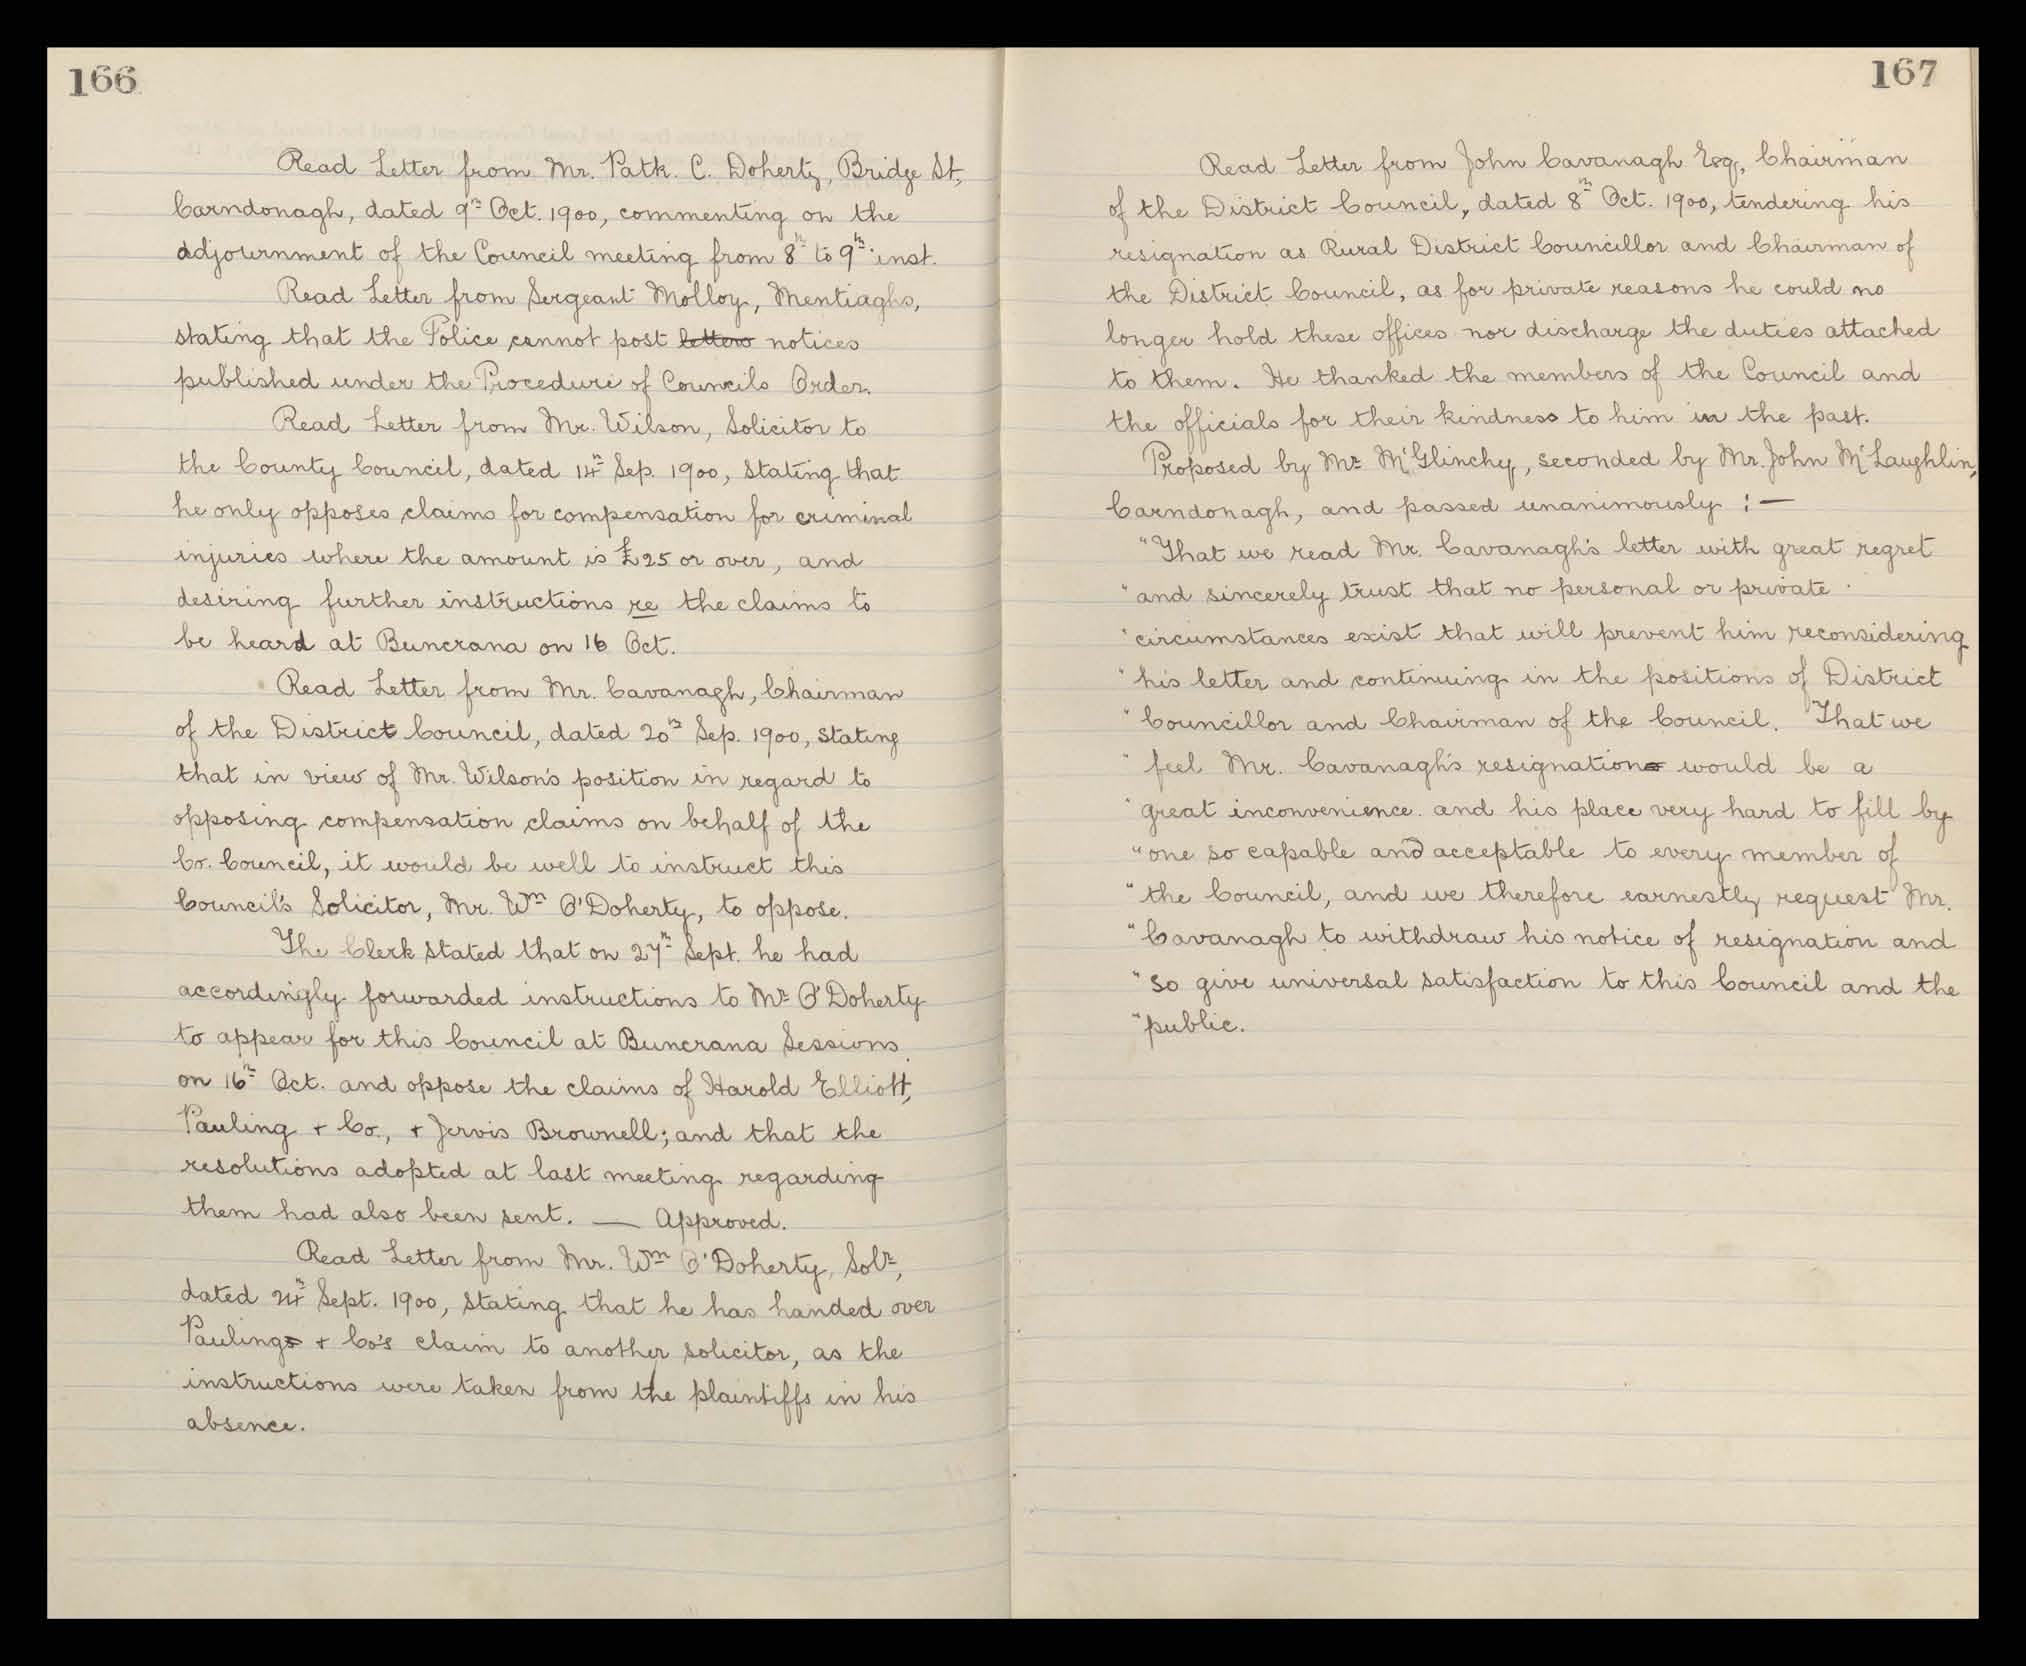 166
Read Letter from Mr. Patk. C. Doherty, Bridge St.,
Carndonagh, dated 9th Oct. 1900, commenting on the
adjournment of the Council meeting from 8th to 9th inst.
Read Letter from Sergeant Molloy, Mentiaghs,
stating that the Police cannot post letters notices
published under the Procedure of Councils Order.
Read Letter from Mr. Wilson, Solicitor to
the County Council, dated 14th Sep. 1900, stating that
he only opposes claims for compensation for criminal
injuries where the amount is £25 or over, and
desiring further instructions re the claims to
be heard at Buncrana on 16 Oct.
Read Letter from Mr. Cavanagh, Chairman
of the District Council, dated 20th Sep. 1900, stating
that in view of Mr. Wilson's position in regard to
opposing compensation claims on behalf of the
Co. Council, it would be well to instruct this
Council's Solicitor, Mr. Wm O'Doherty, to oppose.
The Clerk stated that on 27th Sept. he had
accordingly forwarded instructions to Mr O'Doherty
to appear for this Council at Buncrana Sessions
on 16th Oct. and oppose the claims of Harold Elliott,
Pauling + Co., + Jervis Brownell; and that the
resolutions adopted at last meeting regarding
them had also been sent. — Approved.
Read Letter from Mr. Wm O'Doherty, Solr,
dated 24th Sept. 1900, stating that he has handed over
Paulings + Co's claim to another solicitor, as the
instructions were taken from the plaintiffs in his
absence.
167
Read Letter from John Cavanagh Esq., Chairman
of the District Council, dated 8th Oct. 1900, tendering his
resignation as Rural District Councillor and Chairman of
the District Council, as for private reasons he could no
longer hold these offices nor discharge the duties attached
to them. He thanked the members of the Council and
the officials for their kindness to him in the past.
Proposed by Mr McGlinchy, seconded by Mr. John McLaughlin,
Carndonagh, and passed unanimously :—
"That we read Mr. Cavanagh's letter with great regret
"and sincerely trust that no personal or private
"circumstances exist that will prevent him reconsidering
"his letter and continuing in the positions of District
"Councillor and Chairman of the Council. That we
"feel Mr. Cavanagh's resignations would be a
"great inconvenience and his place very hard to fill by
"one so capable and acceptable to every member of
"the Council, and we therefore earnestly request Mr.
"Cavanagh to withdraw his notice of resignation and
"so give universal satisfaction to this Council and the
"public.